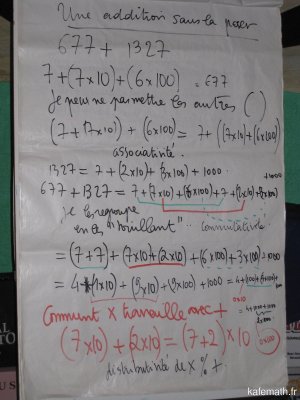 Une addition sans la poser
677 + 1327
7 + (7x10) + (6x100) = 677
Je peux me permettre les autres ( )
(7 + (7x10)) + (6x100) = 7 + ((7x10) + (6x100))
associativité.
1327 = 7 + (2x10) + (3x100) + 1000.
677 + 1327 = 7 + (7x10) + (6x100) + 7 + (2x10) + (3x100)
+1000
je les regroupe
en les "brouillant" commutativité
= (7+7) + (7x10) + (2x10) + (6x100) + (3x100) + 1000
= 4 + (1x10) + (9x10) + (9x100) + 1000 = 4 +
Comment x travaille avec +
(7x10) + (2x10) = (7+2) x 10
distributivité de x % +
kafemath.fr